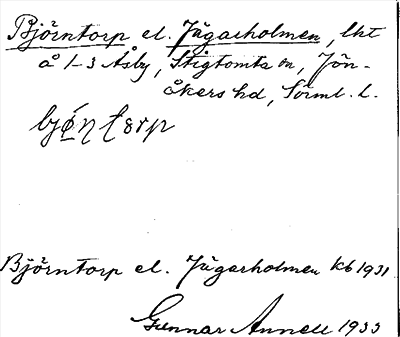 Björntorp el. Jägarholmen, lht
å 1-3 Åsby, Stigtomta sn, Jön-
åkers hd, Sörml. l.
bjǿŋtorp
Björntorp el. Jägarholmen kb 1931
Gunnar Annell 1933